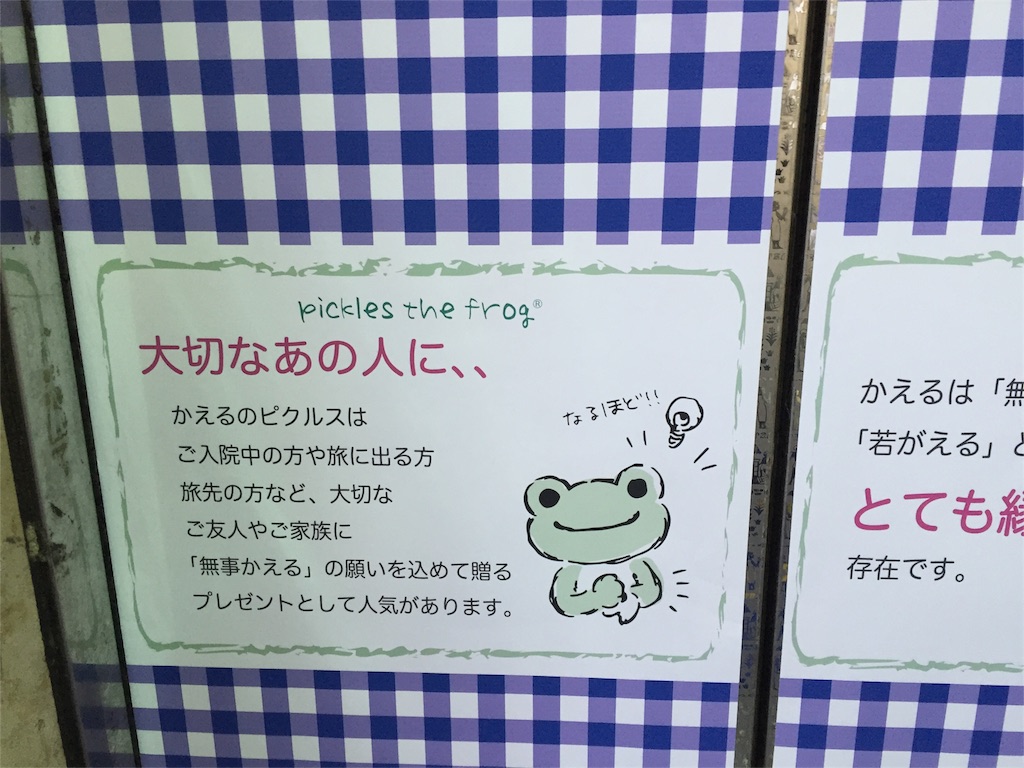 pickles the frog®
大切なあの人に、、
かえるのピクルスは
ご入院中の方や旅に出る方
旅先の方など、大切な
ご友人やご家族に
「無事かえる」の願いを込めて贈る
プレゼントとして人気があります。
なるほど!!
かえるは「無
「若がえる」と
とても縁
存在です。